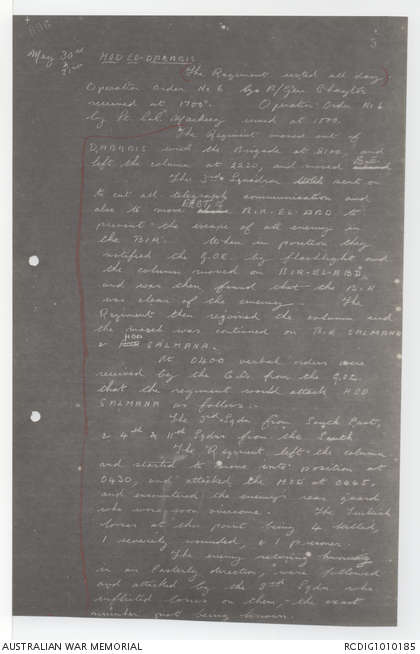 5
May 30th HOD ED-DABABIS
The Regiment rested all day
Operation Order No 6 by B/Gen Chaytor
received at 1700. Operation Order No 6
by Lt. Col. Mackesy issued at 1800.
The Regiment moved out of
DABABIS with the Brigade at 2100, and
left the column at 2220, and moved
The 3rd Squadron went on
to cut all telegraph communication and
also to move BIR-EL-ABD to
prevent the escape of all enemy in
the BIR. When in position they
notified the G.O.C. by flashlight and
the column moved on BIR-EL-ABD,
and was then found that the Bir
was clear of the enemy. The
Regiment then rejoined the column and
the march was continued on Bir SALMANA
& HOD SALMANA.
At 0400 verbal orders were
received by the C.O's from the G.O.C.
that the regiment would attack HOD
SALMANA as follows:-
The 3rd Sqdn from South East,
& 4th & 11th Sqdns from the South
The Regiment left the column
and started to move into position at
0430, and attacked the HOD at 0445,
and encountered the enemy's rear guard
who were soon overcome. The Turkish
losses at this point being 4 killed,
1 severely wounded, & 1 prisoner.
The enemy retiring
in an Easterly direction, were followed
and attacked by the Sqdn. who
inflicted losses on them, the exact
number not being known.
AUSTRALIAN WAR MEMORIAL RCDIG1010185